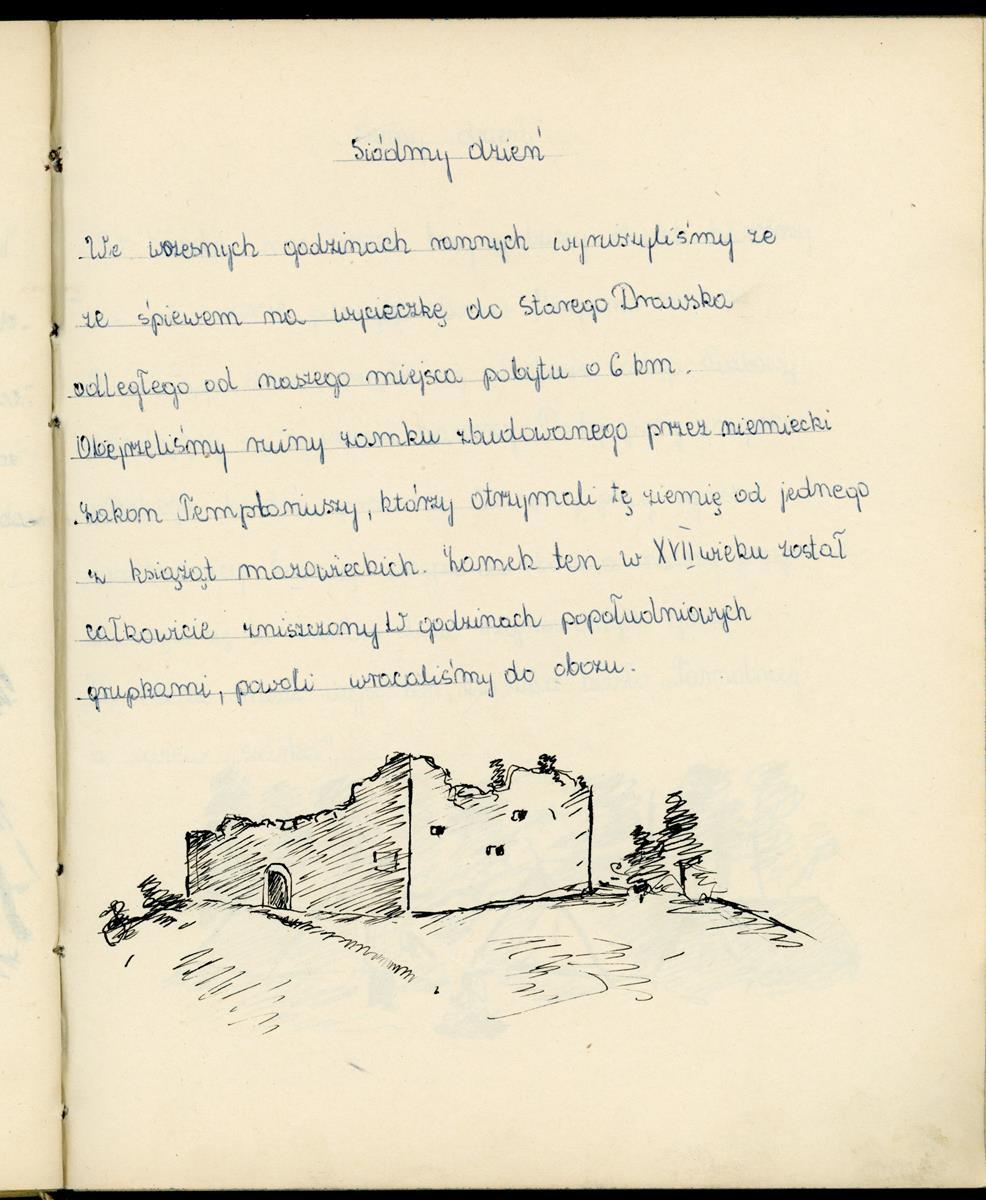 Siódmy dzień
We wczesnych godzinach rannych wyruszyliśmy ze
ze śpiewem na wycieczkę do Starego Drawska
odległego od naszego miejsca pobytu o 6 km.
Obejrzeliśmy ruiny zamku zbudowanego przez niemiecki
zakon Templariuszy, którzy otrzymali tę ziemię od jednego
z książąt mazowieckich. Zamek ten w XVII wieku został
całkowicie zniszczony W godzinach popołudniowych
grupkami, powoli wracaliśmy do obozu.